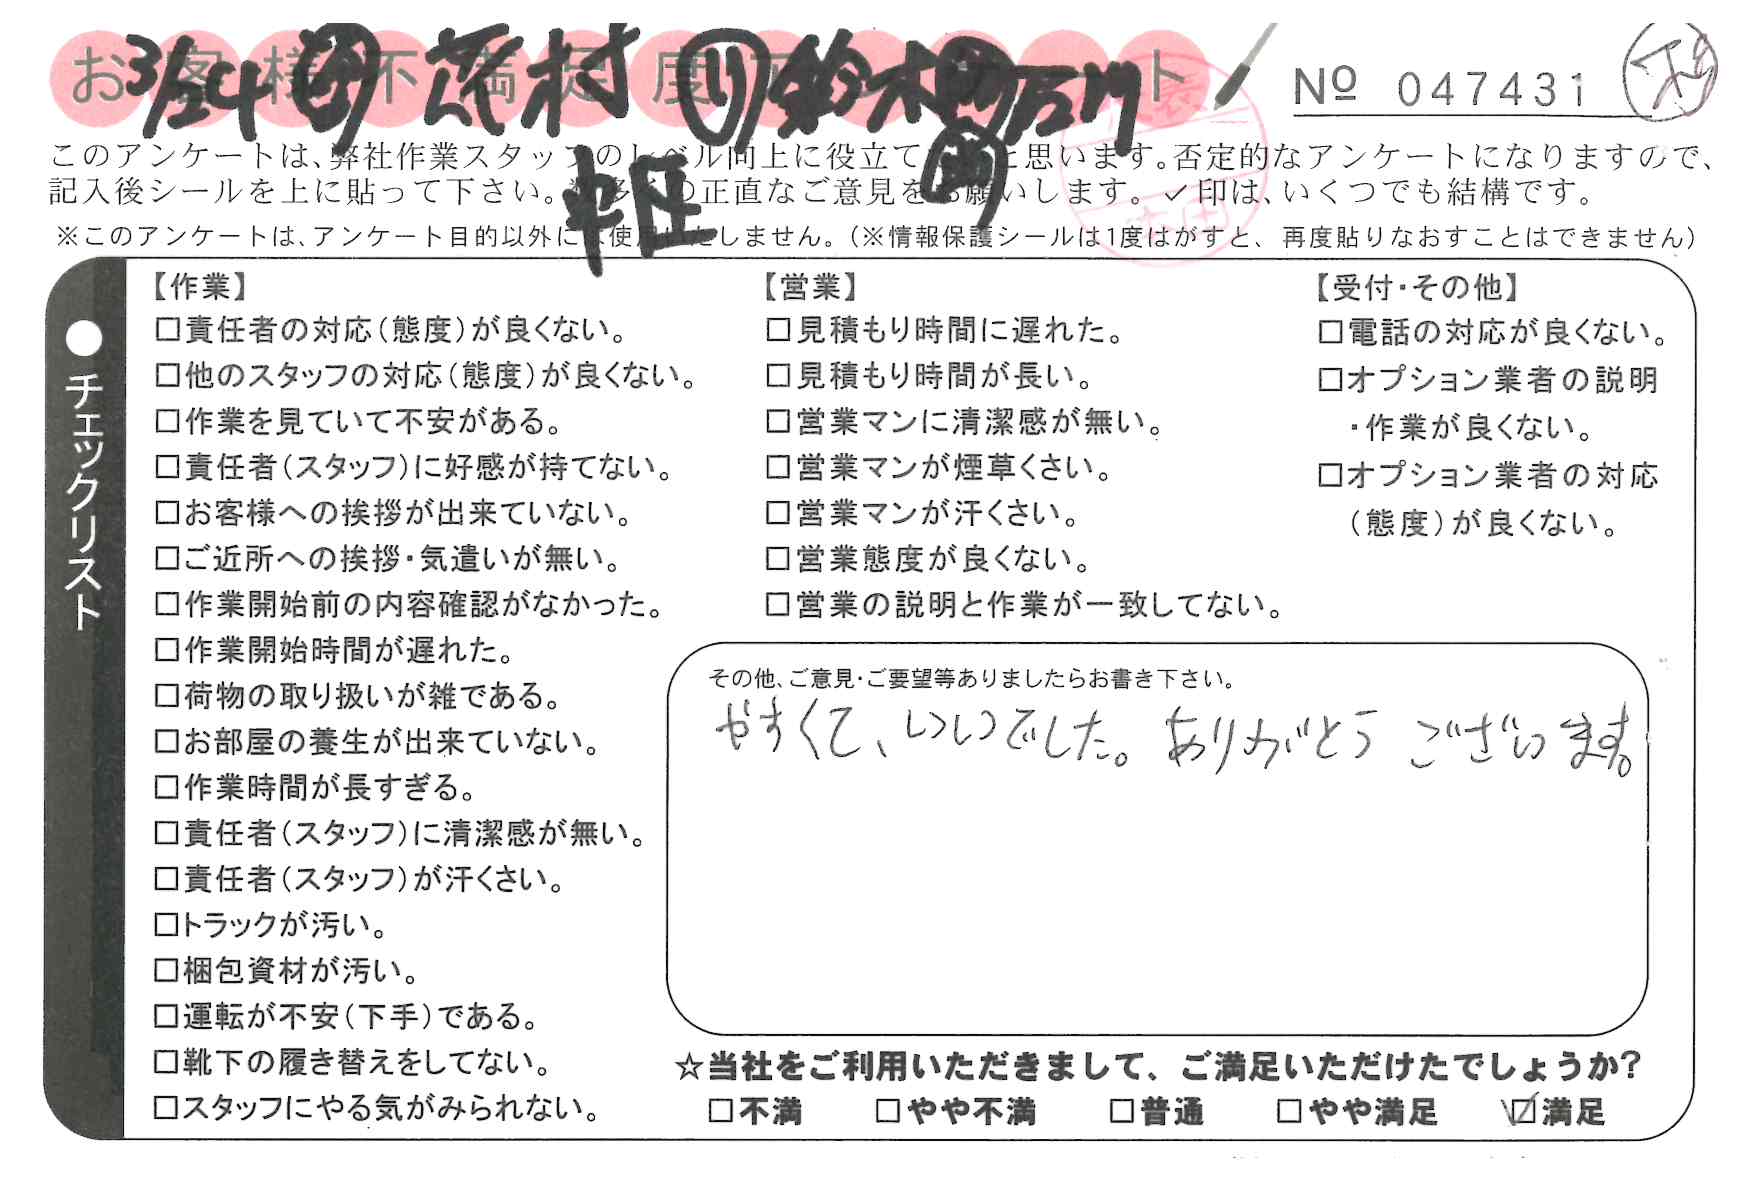 お客様不満足度アンケート
3/24 茂村 鈴木 石川
中庄
Nº 047431
このアンケートは、弊社作業スタッフのレベル向上に役立て と思います。否定的なアンケートになりますので、
記入後シールを上に貼って下さい。 の正直なご意見をお願いします。✓印は、いくつでも結構です。
※このアンケートは、アンケート目的以外には使用いたしません。(※情報保護シールは1度はがすと、再度貼りなおすことはできません)
●チェックリスト
【作業】
□責任者の対応(態度)が良くない。
□他のスタッフの対応(態度)が良くない。
□作業を見ていて不安がある。
□責任者(スタッフ)に好感が持てない。
□お客様への挨拶が出来ていない。
□ご近所への挨拶・気遣いが無い。
□作業開始前の内容確認がなかった。
□作業開始時間が遅れた。
□荷物の取り扱いが雑である。
□お部屋の養生が出来ていない。
□作業時間が長すぎる。
□責任者(スタッフ)に清潔感が無い。
□責任者(スタッフ)が汗くさい。
□トラックが汚い。
□梱包資材が汚い。
□運転が不安(下手)である。
□靴下の履き替えをしてない。
□スタッフにやる気がみられない。
【営業】
□見積もり時間に遅れた。
□見積もり時間が長い。
□営業マンに清潔感が無い。
□営業マンが煙草くさい。
□営業マンが汗くさい。
□営業態度が良くない。
□営業の説明と作業が一致してない。
【受付・その他】
□電話の対応が良くない。
□オプション業者の説明
・作業が良くない。
□オプション業者の対応
(態度)が良くない。
その他、ご意見・ご要望等ありましたらお書き下さい。
やすくて、いいでした。ありがとうございます。
☆当社をご利用いただきまして、ご満足いただけたでしょうか?
□不満 □やや不満 □普通 □やや満足 ☑満足